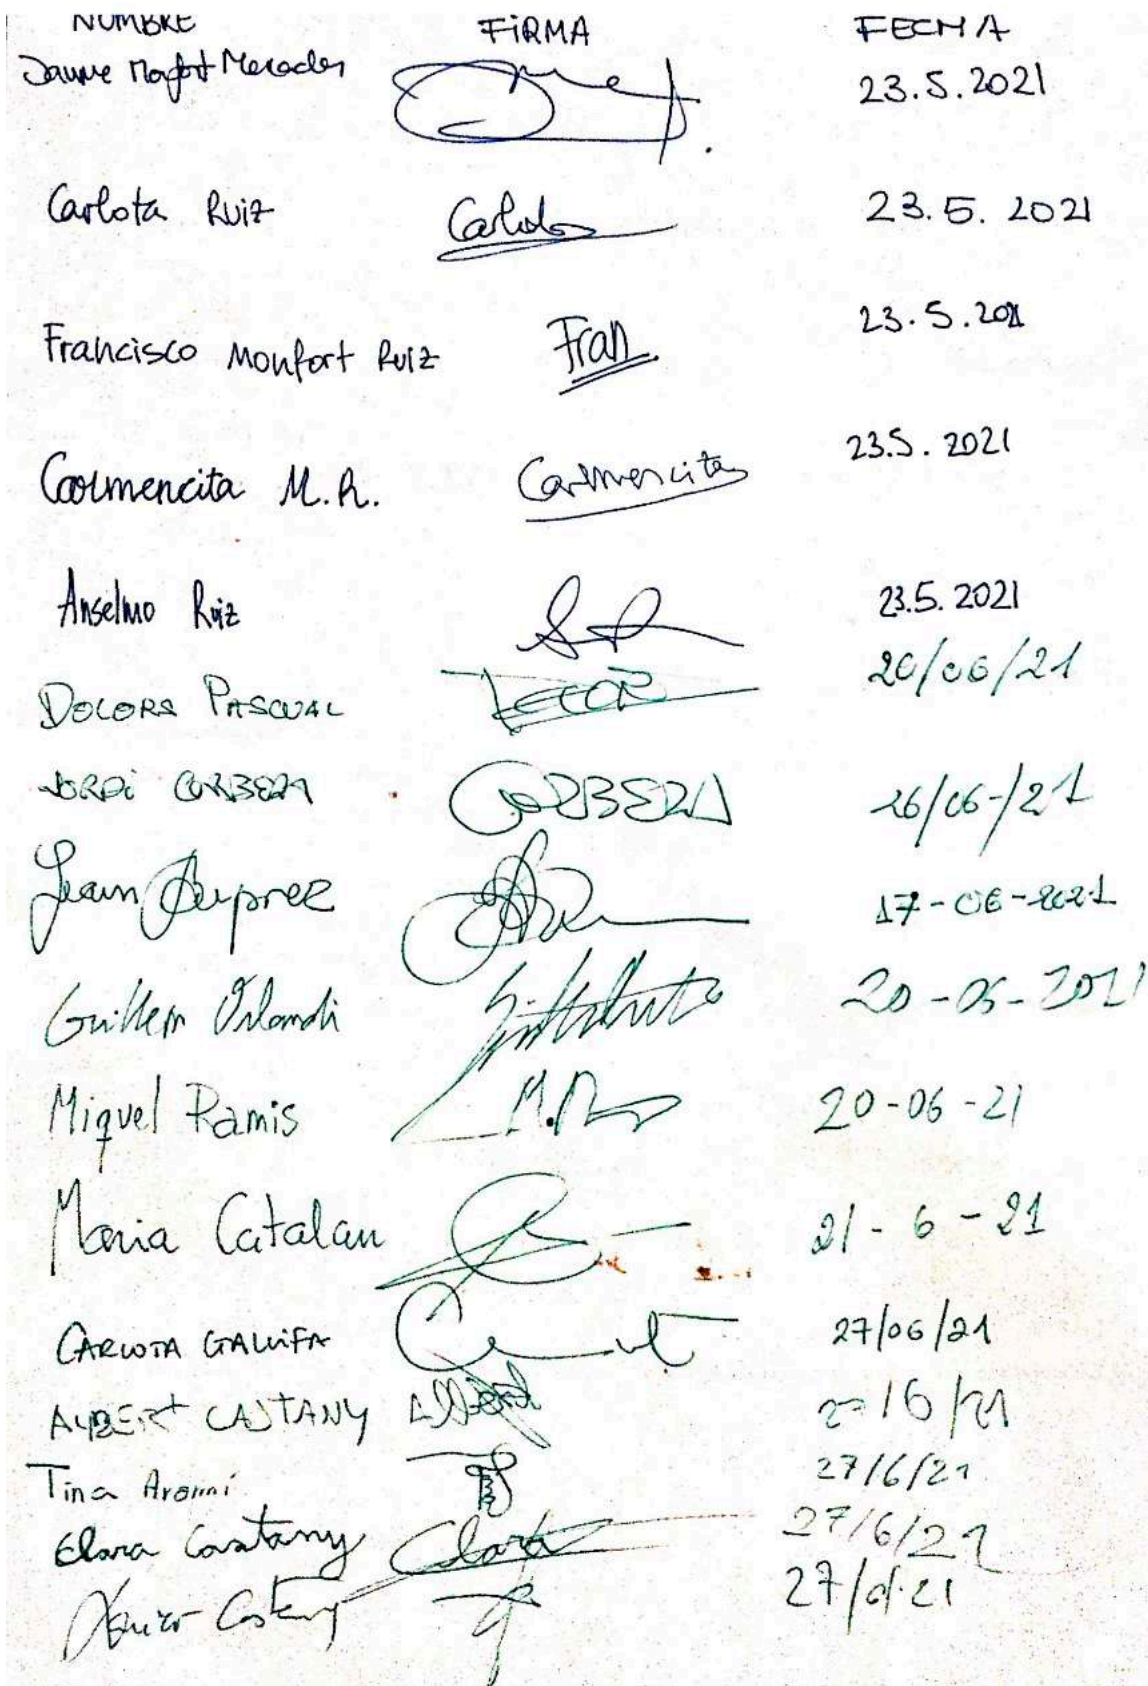 NOMBRE FIRMA FECHA
Jaume Monfort Mercader 23.5.2021
Carlota Ruiz Carlota 23.5.2021
Francisco Monfort Ruiz Fran 23.5.2021
Carmencita M.R. Carmencita 23.5.2021
Anselmo Ruiz 23.5.2021
DOLORS PASCUAL 20/06/21
JORDi CORBERA CORBERA 26/06/21
Jean Duprez 17-06-2021
Guillem Orlandi 20-06-2021
Miquel Ramis M.R 20-06-21
Maria Catalan 21-6-21
CARLOTA GALLIFA 27/06/21
ALBERT CASTANY Albert 27/6/21
Tina Aromi 27/6/21
Clara Castany Clara 27/6/21
Xavier Castany 27/6/21